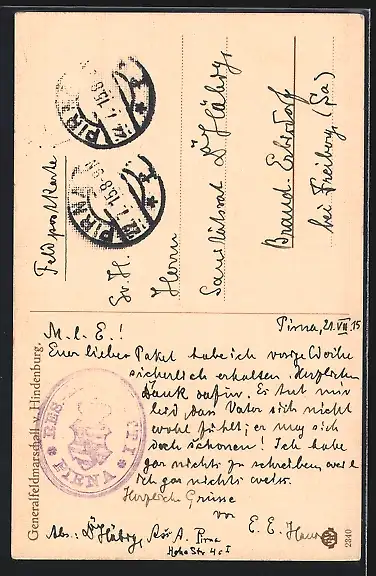 Feldpostkarte
Sr. H.
Herrn
Sanitätsrat Dr Häbry,
Brand-Erbisdorf
bei Freiberg (Sa)
PIRNA
15.8-9N
PIRNA
15.8-9N
Pirna, 21.VII.15
M. l. E.!
Euer lieber Paket habe ich vorige Woche
sicherlich erhalten. Herzlichen
Dank dafür. Es tut mir
leid, dass Vater sich nicht
wohl fühlt; er mag sich
doch schonen! Ich habe
gar nichts zu schreiben, weil
ich gar nichts weiss.
Herzliche Grüsse
von
E. E. Hans
Abs.: Dr Häbry, A. Pirna
Hohe Str 4c I
RES.
PIRNA I
Generalfeldmarschall v. Hindenburg.
2340